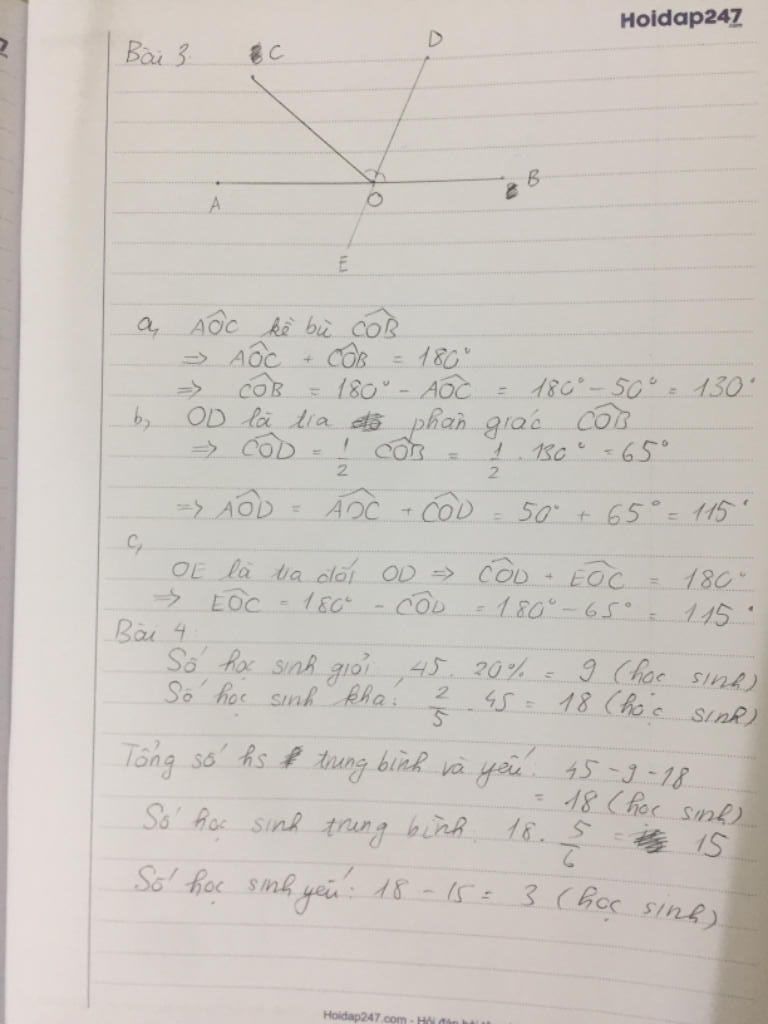 Hoidap247
Bài 3.
C
D
A
O
B
E
a, AÔC kề bù CÔB
=> AÔC + CÔB = 180°
=> CÔB = 180° - AÔC = 180° - 50° = 130°
b, OD là tia phân giác CÔB
=> CÔD = 1/2 CÔB = 1/2 . 130° = 65°
=> AÔD = AÔC + CÔD = 50° + 65° = 115°
c,
OE là tia đối OD => CÔD + EÔC = 180°
=> EÔC = 180° - CÔD = 180° - 65° = 115°
Bài 4:
Số học sinh giỏi, 45. 20% = 9 (học sinh)
Số học sinh khá: 2/5 . 45 = 18 (học sinh)
Tổng số hs trung bình và yếu: 45 - 9 - 18
= 18 (học sinh)
Số học sinh trung bình. 18. 5/6 = 15
Số học sinh yếu: 18 - 15 = 3 (học sinh)
Hoidap247.com - Hỏi đáp bài